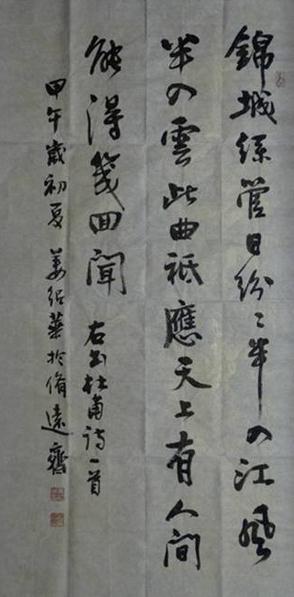 錦城絲管日紛々半入江風
半入雲此曲祇應天上有人間
能得幾回聞 右書杜甫詩一首
甲午歲初夏 姜紹華於脩遠齋